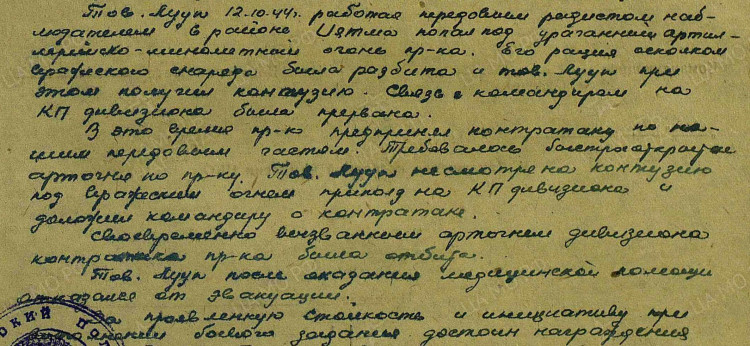 Тов. Луук 12.10.44г. работая передовым радистом наб-
людателем в районе Иятма попал под ураганный артил-
лерийско-минометный огонь пр-ка. Его рация осколком
вражеского снаряда была разбита и тов. Луук при
этом получил контузию. Связь с командиром на
КП дивизиона была прервана.
В это время пр-к предпринял контратаку по на-
шим передовым частям. Требовалось быстро открытие
артогня по пр-ку. Тов. Луук несмотря на контузию
под вражеским огнем приполз на КП дивизиона и
доложил командиру о контратаке.
Своевременно вызванным артогнем дивизиона
контратака пр-ка была отбита.
Тов. Луук после оказания медицинской помощи
отказался от эвакуации.
За проявленную стойкость и инициативу при
выполнении боевого задания достоин награждения
СКИЙ ПОЛ